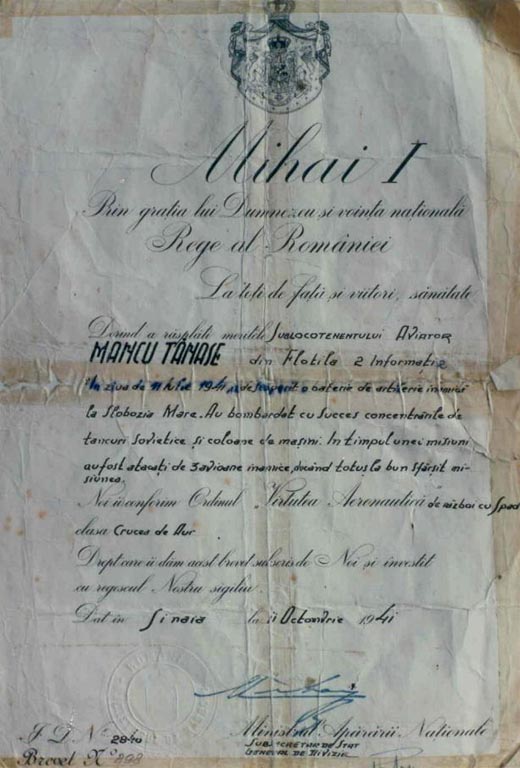 Mihai I
Prin gratia lui Dumnezeu si vointa natională
Rege al României
La toti de fată si viitori, sănătate
Dorind a răsplăti meritele SUBLOCOTENENTULUI AVIATOR
MANCU TĂNASE din Flotila 2 Informatie
În ziua de 11 Iulie 1941, a descoperit o baterie de artilerie inamică
la Slobozia Mare. Au bombardat cu succes concentrările de
tancuri sovietice și coloane de mașini. In timpul unei misiuni
au fost atacați de 3 avioane inamice, ducând totuș la bun sfârșit mi-
siunea.
Noi îi conferim Ordinul "Virtutea Aeronautică de război cu spade
clasa Crucea de Aur
Drept care îi dăm acest brevet subscris de Noi si învestit
cu regescul Nostru sigiliu.
Dat în Sinaia la 11 Octombrie 1941
Ministrul Apărării Nationale
SUBSECRETAR DE STAT
GENERAL DE DIVIZIE
I. D. No 2840
Brevet No